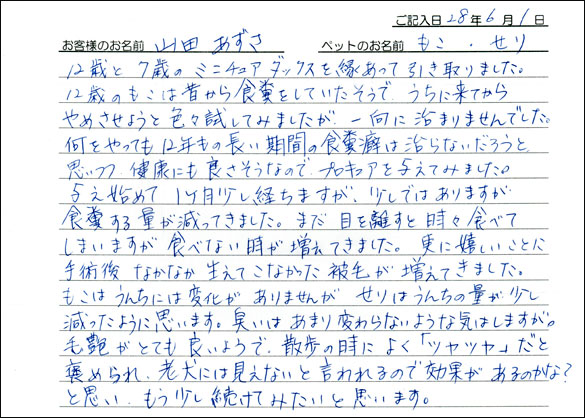 ご記入日 28年 6月 1日
お客様のお名前 山田 あずさ ペットのお名前 もこ・せり
12歳と7歳のミニチュアダックスを縁あって引き取りました。
12歳のもこは昔から食糞をしていたそうで、うちに来てから
やめさせようと色々試してみましたが、一向に治まりませんでした。
何をやっても12年もの長い期間の食糞癖は治らないだろうと
思いつつ、健康にも良さそうなので、プロキュアを与えてみました。
与え始めて1ヶ月少し経ちますが、少しではありますが
食糞する量が減ってきました。まだ目を離すと時々食べて
しまいますが食べない時が増えてきました。更に嬉しいことに
手術後なかなか生えてこなかった被毛が増えてきました。
もこはうんちには変化がありませんが せりはうんちの量が少し
減ったように思います。臭いはあまり変わらないような気はしますが。
毛艶がとても良いようで、散歩の時によく「ツヤツヤ」だと
褒められ、老犬には見えないと言われるので効果があるのかな?
と思い、もう少し続けてみたいと思います。